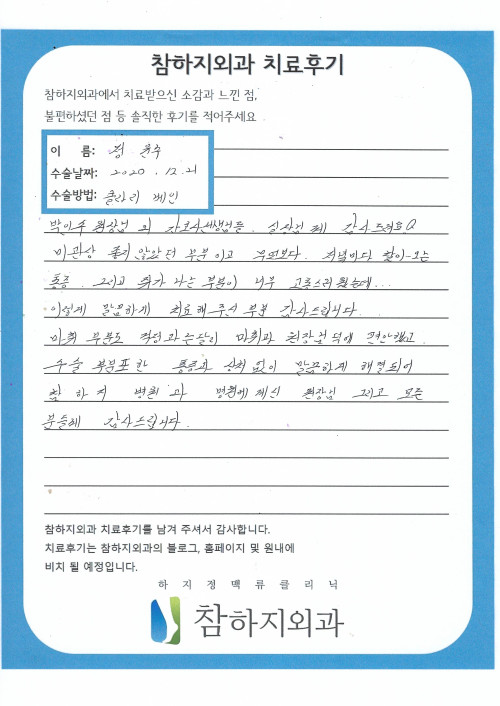 참하지외과 치료후기
참하지외과에서 치료받으신 소감과 느낀 점,
불편하셨던 점 등 솔직한 후기를 적어주세요
이 름: 윤주
수술날짜: 2020. 12. 21
수술방법: 클라리 베인
원장님 외 간호사 생님들 감사드려요
미관상 좋지 않았던 부분이고 무엇보다. 저녁마다 찾아오는
통증. 그리고 쥐가 나는 부분이 너무 고통스러웠는데...
이렇게 말끔하게 치료해주셔서 감사드립니다.
마취 부분도 걱정과는 달리 마취과 원장님 덕에 편안했고
수술 부분 또한 통증과 상처 없이 말끔하게 해결되어
참 하지 병원과 병원에 계신 원장님 그리고 모든
분들께 감사드립니다.
참하지외과 치료후기를 남겨 주셔서 감사합니다.
치료후기는 참하지외과의 블로그, 홈페이지 및 원내에
비치 될 예정입니다.
하지정맥류클리닉
참하지외과